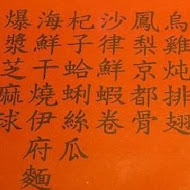 烏雞炖排翅
鳳梨京都骨
沙律鮮蝦卷
杞子蛤蜊絲瓜
海鮮干燒伊府麵
爆漿芝麻球